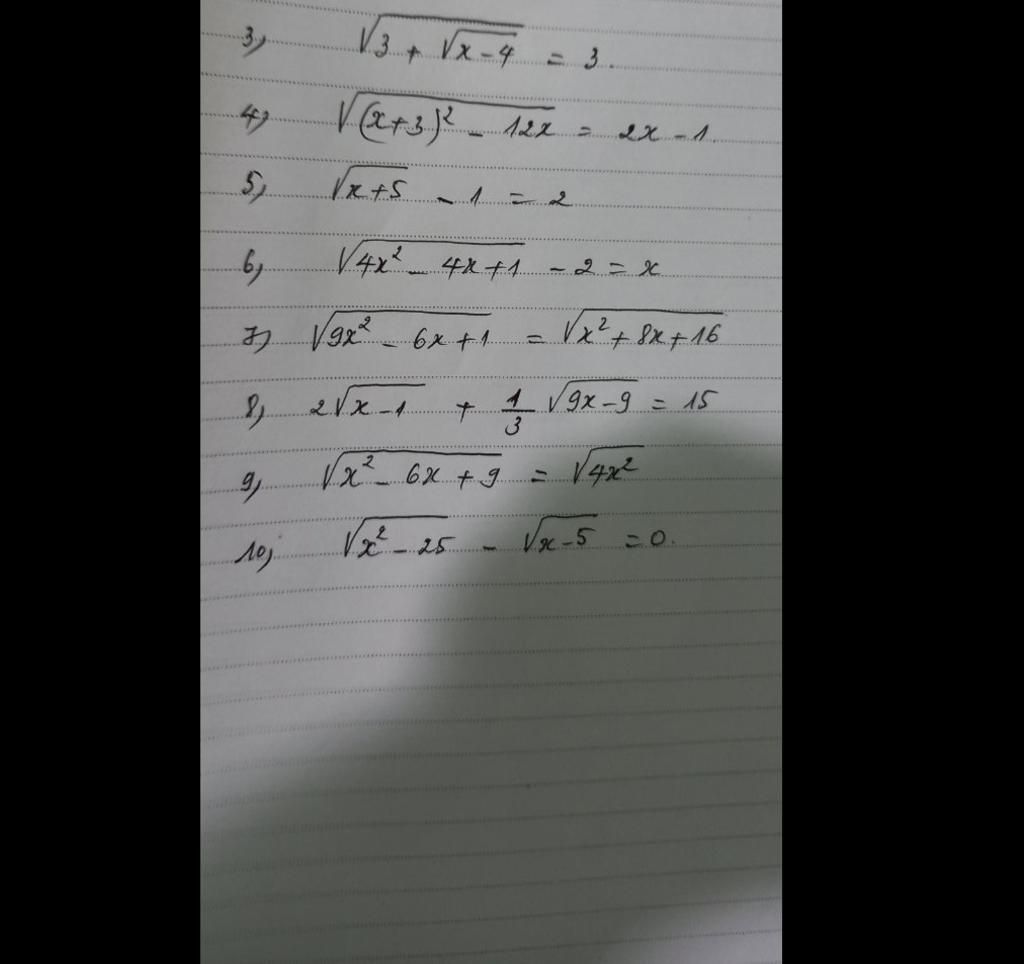 3) √(3 + √(x-4)) = 3.
4) √((x+3)² - 12x) = 2x - 1.
5) √(x+5) - 1 = 2
6) √(4x² - 4x+1) - 2 = x
7) √(9x² - 6x+1) = √(x² + 8x+16)
8) 2√(x-1) + 1/3 √(9x-9) = 15
9) √(x² - 6x + 9) = √(4x²)
10) √(x² - 25) - √(x-5) = 0.